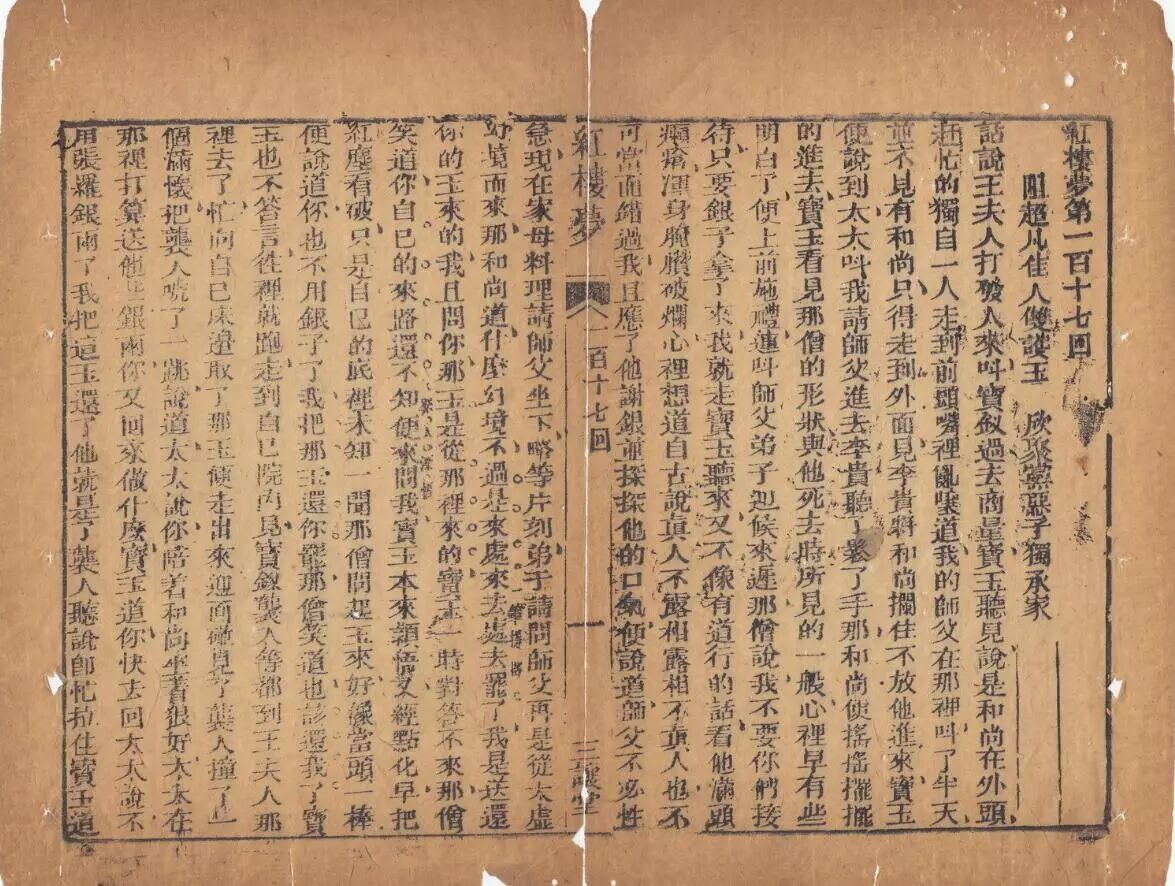 紅樓夢第一百十七回
阻超凡佳人雙護玉　欣聚黨惡子獨承家
話說王夫人打發人來叫寶釵過去商量寶玉聽見說是和尚在外頭
赶忙的獨自一人走到前頭嘴裡亂嚷道我的師父在那裡叫了半天
並不見有和尚只得走到外面見李貴將和尚攔住不放他進來寶玉
便說到太太叫我請師父進去李貴聽了鬆了手那和尚便搖搖擺擺
的進去寶玉看見那僧的形狀與他死去時所見的一般心裡早有些
明白了便上前施禮連叫師父弟子迎候來遲那僧說我不要你們接
待只要銀子拿了來我就走寶玉聽來又不像有道行的話看他滿頭
癩瘡渾身腌臢破爛心裡想道自古說真人不露相露相不真人也不
可當面錯過我且應了他謝銀並探探他的口氣便說道師父不必性
紅樓夢　一百十七回　一　三讓堂
急現在家母料理請師父坐下略等片刻弟子請問師父再是從太虛
幻境而來那和尚道什麼幻境不過是來處來去處去罷了我是送還
你的玉來的我且問你那玉是從那裡來的寶玉一時對答不來那僧
笑道你自己的來路還不知便來問我寶玉本來穎悟又經點化早把
紅塵看破只是自己的底裡未知一聞那僧問起玉來好像當頭一棒
便說道你也不用銀子了我把那玉還你罷那僧笑道也該還我了寶
玉也不答言徃裡就跑走到自己院內見寶釵襲人等都到王夫人那
裡去了忙向自己床邊取了那玉便走出來迎面碰見了襲人撞了一
個滿懷把襲人唬了一跳說道太太說你陪着和尚坐著狠好太太在
那裡打算送他些銀兩你又回來做什麼寶玉道你快去回太太說不
用張羅銀兩了我把這玉還了他就是了襲人聽說即忙拉住寶玉道